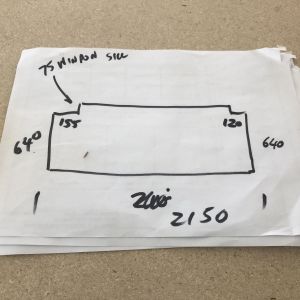 75 WINDOW SILL
155 120
640 640
2150